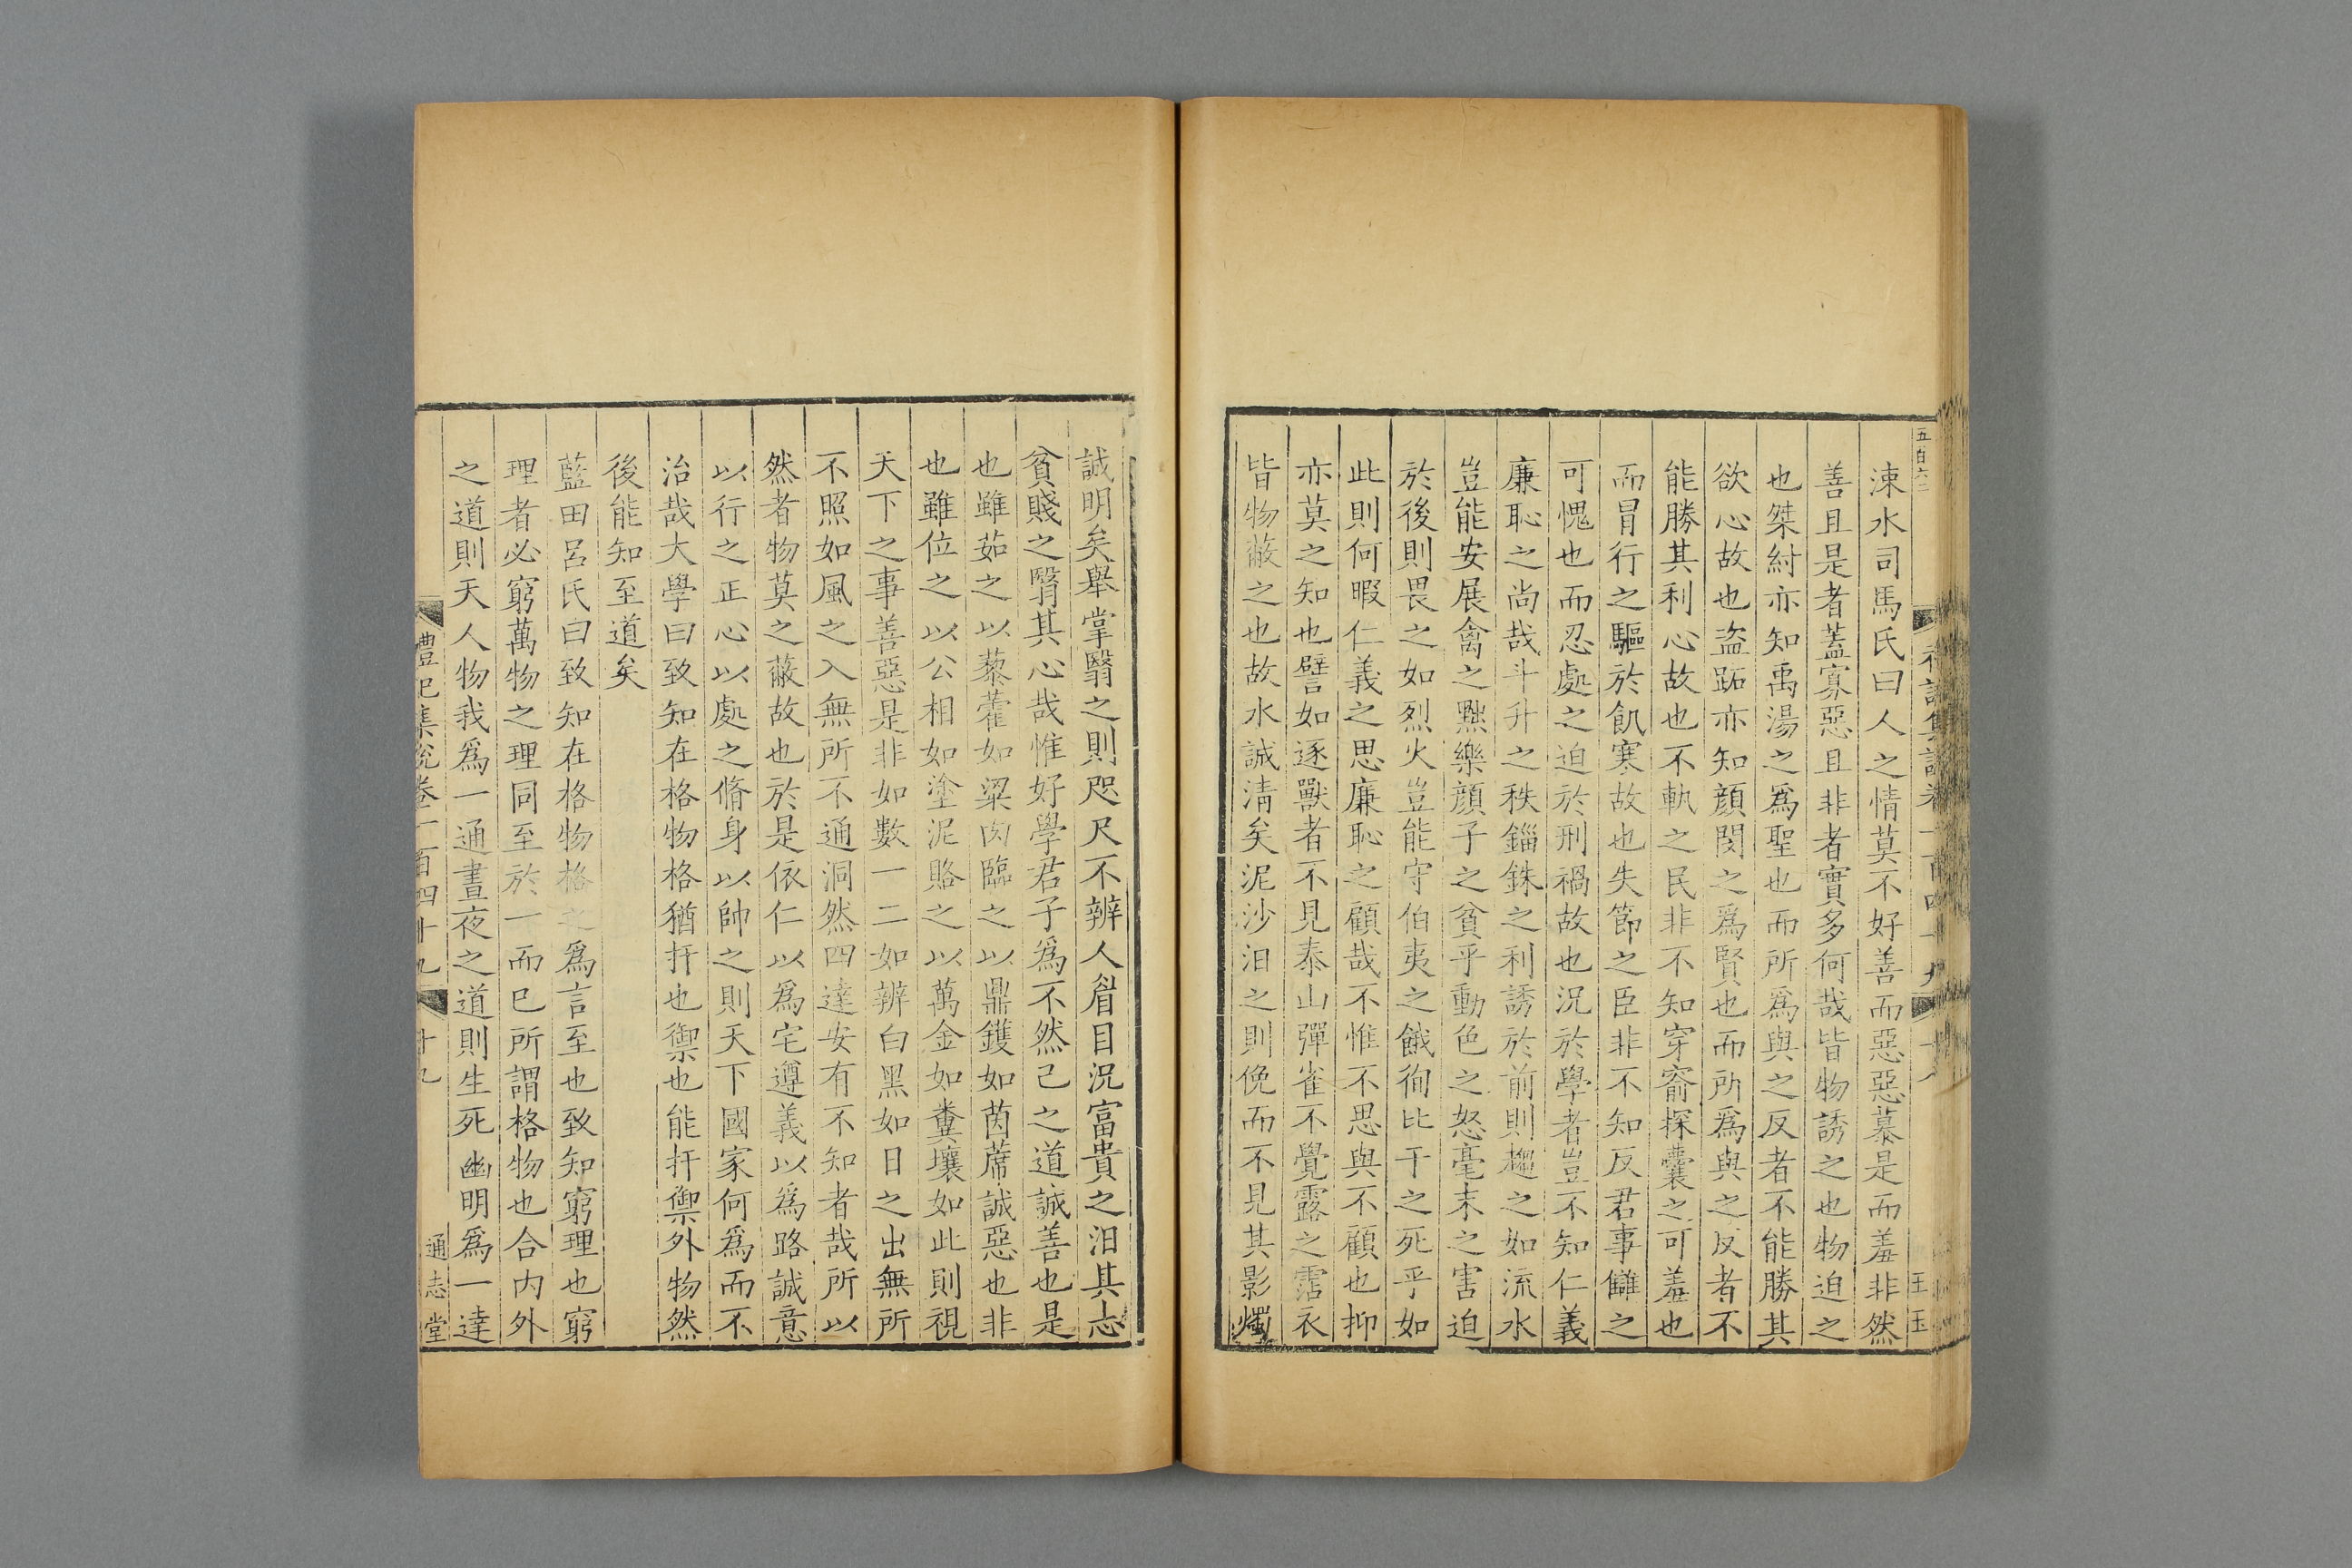 五百六二
涑水司馬氏曰人之情莫不好善而惡惡慕是而羞非然
善且是者蓋寡惡且非者實多何哉皆物誘之也物迫之
也桀紂亦知禹湯之爲聖也而所爲與之反者不能勝其
欲心故也盜跖亦知顔閔之爲賢也而所爲與之反者不
能勝其利心故也不軌之民非不知穿窬探囊之可羞也
而冒行之驅於飢寒故也失節之臣非不知反君事讎之
可愧也而忍處之迫於刑禍故也況於學者豈不知仁義
廉恥之尚哉斗升之秩錙銖之利誘於前則趨之如流水
豈能安展禽之黜樂顔子之貧乎動色之怒毫末之害迫
於後則畏之如烈火豈能守伯夷之餓徇比干之死乎如
此則何暇仁義之思廉恥之顧哉不惟不思與不顧也抑
亦莫之知也譬如逐獸者不見泰山彈雀不覺露之霑衣
皆物蔽之也故水誠淸矣泥沙汩之則俛而不見其影燭
誠明矣舉掌翳之則咫尺不辨人眉目況富貴之汩其志
貧賤之翳其心哉惟好學君子爲不然己之道誠善也是
也雖茹之以藜藿如粱肉臨之以鼎鑊如茵蓆誠惡也非
也雖位之以公相如塗泥賂之以萬金如糞壤如此則視
天下之事善惡是非如數一二如辨白黑如日之出無所
不照如風之入無所不通洞然四達安有不知者哉所以
然者物莫之蔽故也於是依仁以爲宅遵義以爲路誠意
以行之正心以處之脩身以帥之則天下國家何爲而不
治哉大學曰致知在格物格猶扞也禦也能扞禦外物然
後能知至道矣
藍田呂氏曰致知在格物格之爲言至也致知窮理也窮
理者必窮萬物之理同至於一而已所謂格物也合內外
之道則天人物我爲一通晝夜之道則生死幽明爲一達
禮記集說卷一百四十九 十九 通志堂